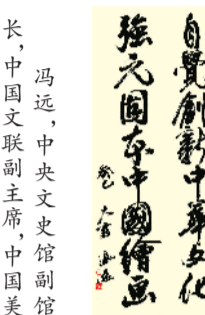 自覺創新中華文化
強元固本中國繪畫
癸巳 大雪 馮遠
冯远，中央文史馆副馆
长，中国文联副主席，中国美